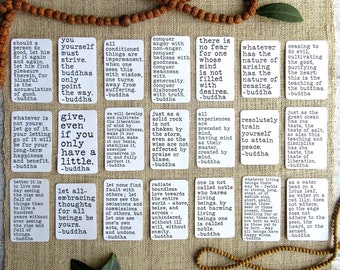 should a
person do
good, let him
do it again
and again.
let him find
pleasure
therein, for
blissful
is the
accumulation of
good.
-buddha
you
yourself
must
strive.
the
buddhas
only
point the
way.
-buddha
all
conditioned
things are
impermanent -
when one
sees this
with wisdom,
one turns
away from
suffering.
-buddha
conquer
anger with
non-anger.
conquer
badness with
goodness.
conquer
meanness
with
generosity.
conquer
dishonesty
with truth.
-buddha
there is
no fear for
one
whose
mind is
not filled
with
desires.
-buddha
whatever
has the
nature of
arising
has the
nature of
ceasing.
-buddha
ceasing to
do evil,
cultivating
the good,
purifying
the heart:
this is the
teaching of
the buddhas.
-buddha
whatever is
not yours:
let go of it.
your letting
go of it will
be for your
long-term
happiness
and benefit.
-buddha
give,
even if
you only
have a
little.
-buddha
we will develop
and cultivate
the liberation
of mind by
lovingkindness,
make it our
basis, stabilize
it, exercise
ourselves in
it, and fully
perfect it.
-buddha
Just as a
solid rock
is not
shaken by
the storm,
even so the
wise are not
affected by
praise or
blame.
-buddha
all
experiences
are
preceded by
mind,
having mind
as their
master,
created by
mind.
-buddha
resolutely
train
yourself
to attain
peace.
-buddha
just as the
great ocean
has one
taste, the
taste of
salt, so also
this
teaching
and
discipline
has one
taste, the
taste of
liberation.
-buddha
better it is
to live one
day seeing
the rise and
fall of
things than
to live a
hundred
years without
ever seeing
the rise and
fall of things.
-buddha
let all-
embracing
thoughts
for all
beings be
yours.
-buddha
let none
find fault with
others. let
none see the
omissions and
commissions
of others. but
let one see
one's own
acts, done
and undone.
-buddha
radiate
boundless
love towards
the entire
world - above,
below, and
across -
unhindered,
without ill
will, without
enmity.
-buddha
one is not
called
noble who
harms
living
beings. by
not harming
living
beings one
is called
noble.
-buddha
-buddha
as a water
bead on a
lotus leaf,
as water on
a red lily,
does not
adhere, so
the sage
does not
adhere to
the seen,
the heard or
the sensed.
-buddha